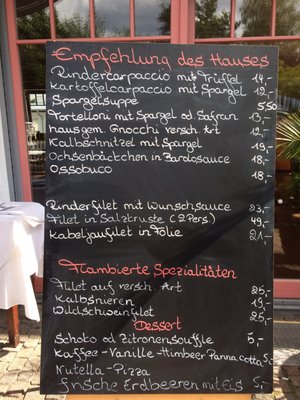 Empfehlung des Hauses
Rindercarpaccio mit Trüffel 14,-
Kartoffelcarpaccio mit Spargel 12,-
Spargelsuppe 5,50
Tortelloni mit Spargel od Safran 13,-
hausgem. Gnocchi versch. Art 12,-
Kalbschnitzel mit Spargel 19,-
Ochsenbäckchen in Barolosauce 18,-
Ossobuco 18,-
Rinderfilet mit Wunschsauce 23,-
Filet in Salzkruste (2 Pers) 49,-
Kabeljaufilet in Folie 21,-
Flambierte Spezialitäten
Filet auf versch. Art 25,-
Kalbsnieren 19,-
Wildschweinfilet 25,-
Dessert
Schoko od Zitronensouffle 5,-
Kaffee-Vanille-Himbeer Panna cotta 5,-
Nutella-Pizza
frische Erdbeeren mit Eis 5,-